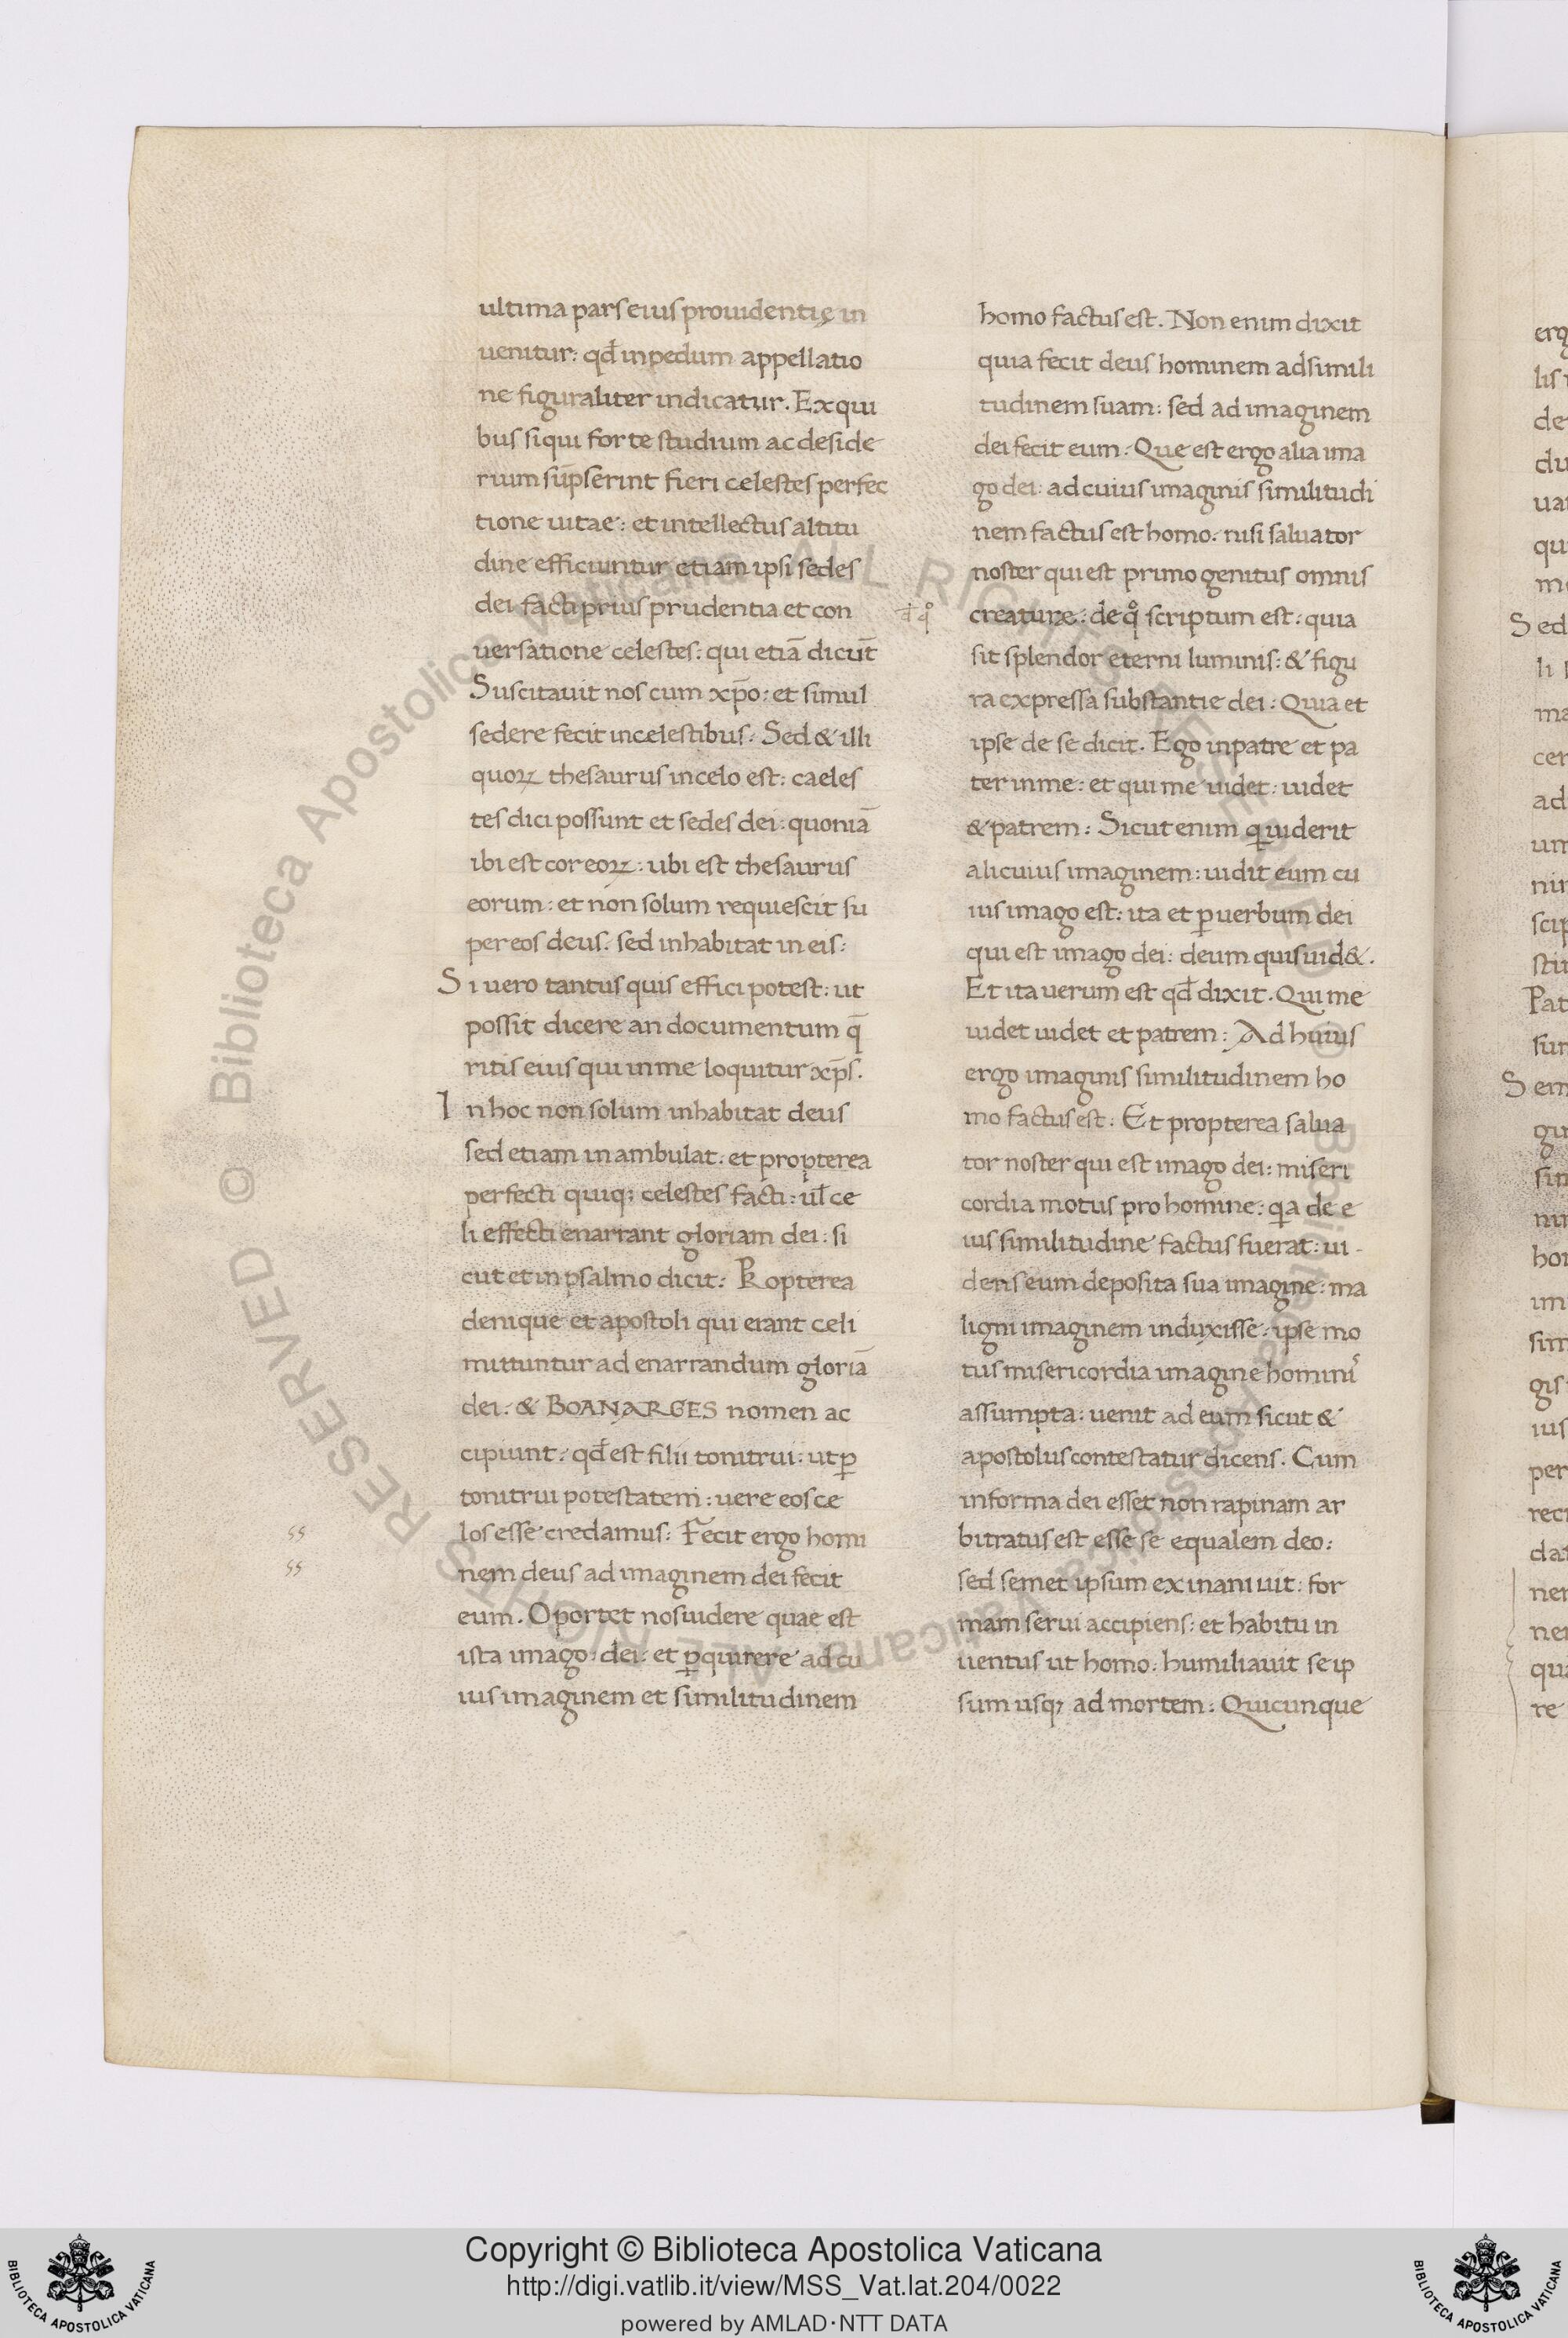 ultima pars eius prouidentię in
uenitur: qđ in pedum appellatio
ne figuraliter indicatur. Ex qui
bus siqui forte studium ac deside
rium sūpserint fieri celestes perfec
tione uitae: et intellectus altitu
dine efficiuntur etiam ipsi sedes
dei facti prius prudentia et con
uersatione celestes: qui etiā dicūt
Suscitauit nos cum xp̄o: et simul
sedere fecit incelestibus: Sed & illi
quoꝝ thesaurus incelo est: caeles
tes dici possunt et sedes dei: quoniā
ibi est cor eoꝝ: ubi est thesaurus
eorum: et non solum requiescit su
per eos deus. sed inhabitat in eis:
Si uero tantus quis effici potest: ut
possit dicere an documentum q̄
ritis eius qui in me loquitur xp̄s.
In hoc non solum inhabitat deus
sed etiam inambulat. et propterea
perfecti quiq; celestes facti: ul̄ ce
li effecti enarrant gloriam dei: si
cut et in psalmo dicit: Propterea
denique et apostoli qui erant celi
mittuntur ad enarrandum gloriā
dei: & BOANARGES nomen ac
cipiunt: qđ est filii tonitrui: ut ꝑ
tonitrui potestatem: uere eos ce
los esse credamus: Fecit ergo homi
nem deus ad imaginem dei fecit
eum. Oportet nos uidere quae est
ista imago dei: et ꝑquirere ad cu
ius imaginem et similitudinem
homo factus est. Non enim dixit
quia fecit deus hominem ad simili
tudinem suam: sed ad imaginem
dei fecit eum. Que est ergo alia ima
go dei: ad cuius imaginis similitudi
nem factus est homo: nisi saluator
noster qui est primogenitus omnis
creature: de qͦ scriptum est: quia
sit splendor eterni luminis: & figu
ra expressa substantie dei: Quia et
ipse de se dicit. Ego inpatre et pa
ter in me: et qui me uidet: uidet
& patrem: Sicut enim qͥ uiderit
alicuius imaginem: uidit eum cu
ius imago est: ita et ꝑ uerbum dei
qui est imago dei: deum quis uid&.
Et ita uerum est qđ dixit. Qui me
uidet uidet et patrem: Ad huius
ergo imaginis similitudinem ho
mo factus est: Et propterea salua
tor noster qui est imago dei: miseri
cordia motus pro homine: qͥa de e
ius similitudine factus fuerat: ui-
dens eum deposita sua imagine: ma
ligni imaginem induxisse: ipse mo
tus misericordia imagine hominis
assumpta: uenit ad eum sicut &
apostolus contestatur dicens. Cum
in forma dei esset non rapinam ar
bitratus est esse se equalem deo:
sed semet ipsum exinaniuit: for
mam serui accipiens: et habitu in
uentus ut homo: humiliauit se ip
sum usq; ad mortem: Quicunque
đ qͦ
ss
ss
erg
lis
de
du
ua
qu
me
Sed
li
ma
cer
ad
um
nin
scip
stin
Pat
sun
Sem
gin
sim
nin
hon
im
sim
gis
ius
per
reci
dat
nem
nem
qua
re
Biblioteca Apostolica Vaticana ALL RIGHTS RESERVED © Biblioteca Apostolica Vaticana ALL RIGHTS RESERVED ©
Copyright © Biblioteca Apostolica Vaticana
http://digi.vatlib.it/view/MSS_Vat.lat.204/0022
powered by AMLAD·NTT DATA
BIBLIOTECA APOSTOLICA VATICANA
BIBLIOTECA APOSTOLICA VATICANA